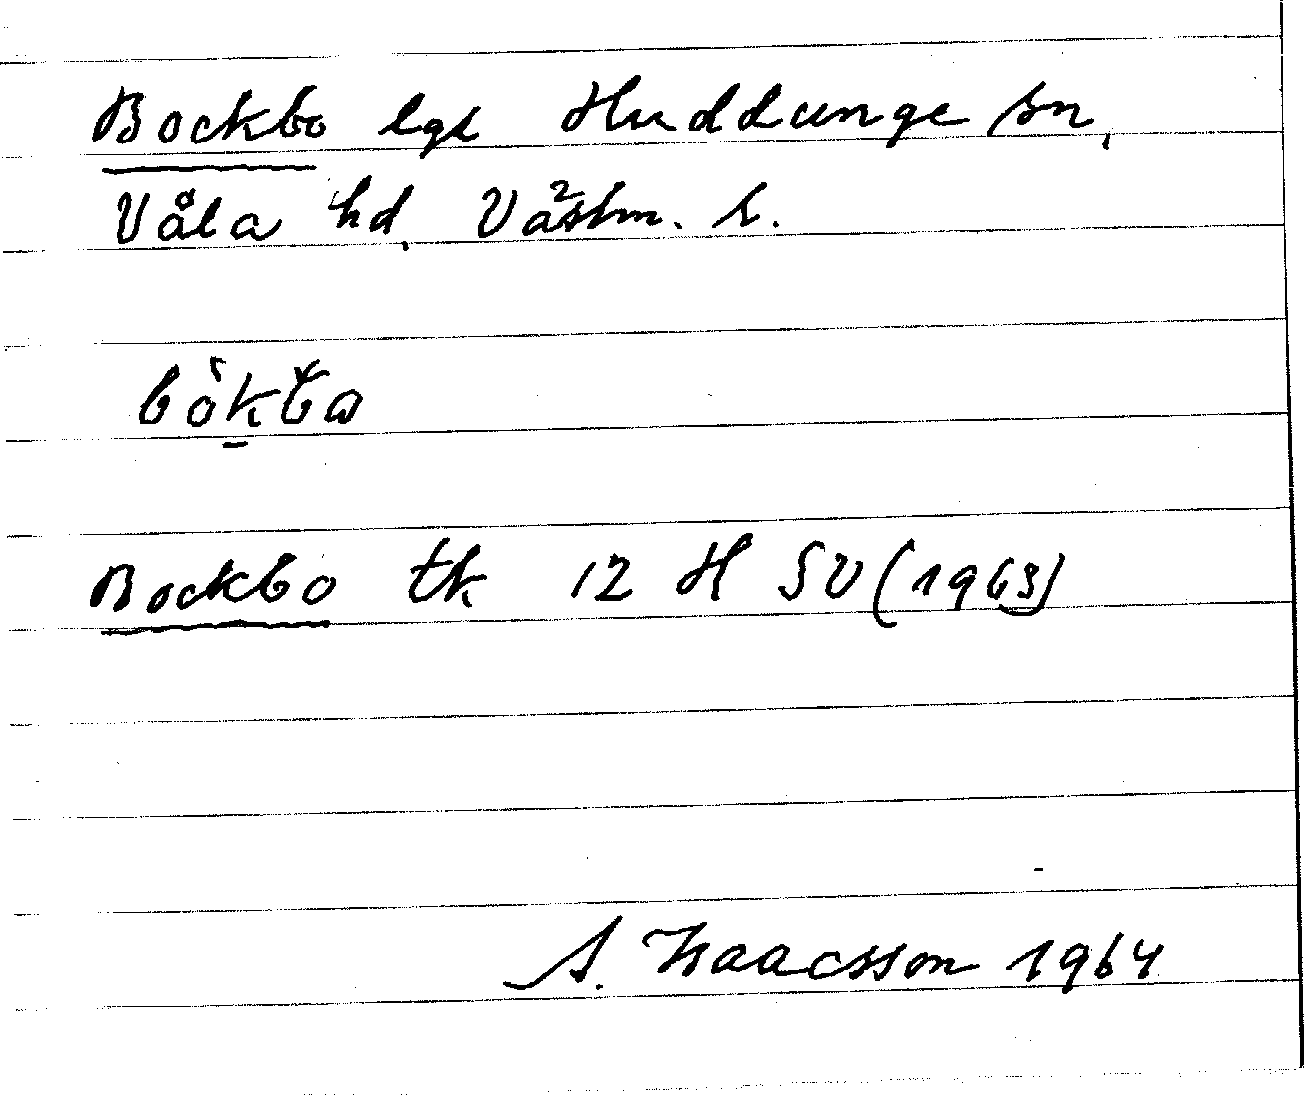 Bockbo lgt Huddunge sn,
Våla hd, Västm. l.
bòk̠b̌ɷ
Bockbo tk 12 H SV (1963)
A. Isaacsson 1964